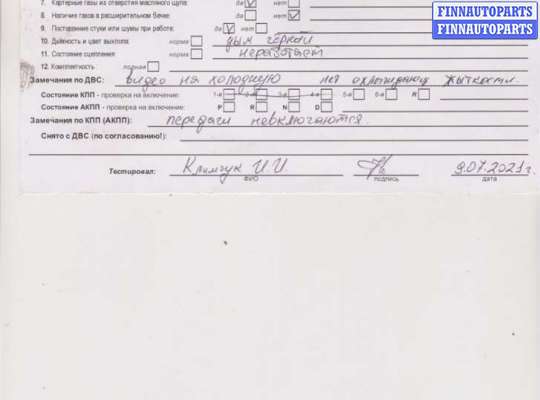 7. Картерные газы из отверстия масляного щупа: да нет
8. Наличие газов в расширительном бачке: да нет
9. Посторонние стуки или шумы при работе: да нет
10. Дымность и цвет выхлопа: норма дым чёрный
11. Состояние сцепления: норма неработает
12. Комплектность: полная
Замечания по ДВС: видео на холодную нет охлаждающ жыткости
Состояние КПП - проверка на включение: 1-я 2-я 3-я 4-я 5-я 6-я R
Состояние АКПП - проверка на включение: P R N D
Замечания по КПП (АКПП): передачи невключаются.
Снято с ДВС (по согласованию!):
Тестировал: Климчук И.И. 9.07.2021г.
ФИО подпись дата
FINNAUTOPARTS
FINNAUTOPARTS